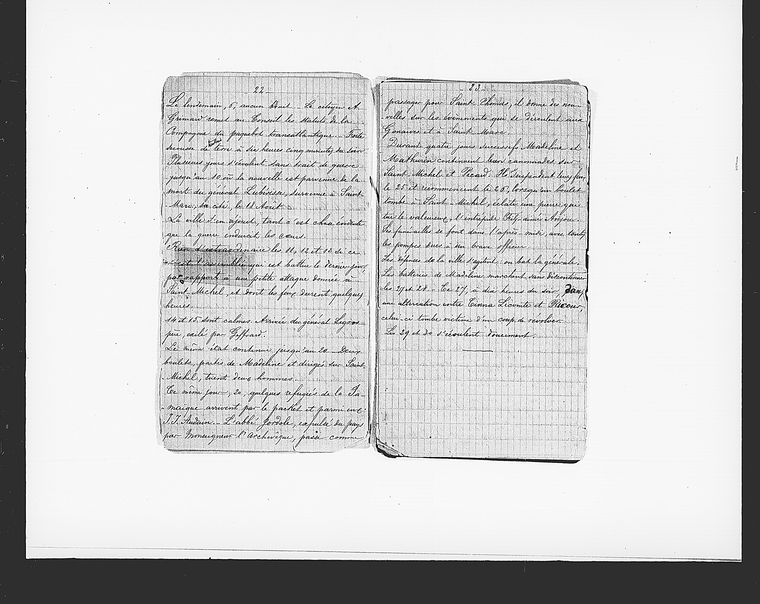 22
Le lendemain, 5, aucun bruit. Le citoyen A.
Grimard remet au Conseil les statuts de la
Compagne du paquebot transatlantique.
à six heures cinq minutes du soir
Plusieurs jours s'écoulent sans trait de guerre
jusqu'au 10 où la nouvelle est parvenue de la
mort du général Lubérisse, survenue à Saint-
Marc, sa cité, le 1er Août.
La ville d'en ajoute, tant c'est
que la guerre endurcit les cœurs.
Rien d'extraordinaire les 11, 12 et 13 si ce
n'est l'assemblée que est battue le dernier jour,
par rapport à une petite attaque donnée à
Saint-Michel, et dont les feux durent quelques
heures.
14 et 15 sont calmes. Arrivée du général
père, exilé par Geffrard.
Le même état continue jusqu'au 20. Deux
boulets, partis de Madeline et dirigés sur Saint-
Michel, tuent deux hommes.
Ce même jour, 20, quelques réfugiés de la Ja-
maïque arrivent par le packet et parmi eux
J. J. Audain. L'abbé, expulsé du pays
par Monseigneur l'archevêque, passe comme
23
passager pour Saint Thomas, il donne des nou-
velles sur les événements qui se déroulent aux
Gonaïves et à Saint Marc.
Durant quatre jours successifs Madeline et
Mathurin continuent leurs canonnades sur
Saint-Michel et Récard. Ils suspendent leurs feux
le 25 et recommencent le 26, lorsqu'un boulet
tombé à Saint-Michel, éclate une pierre qui
tue le valeureux, l'intrépide Chef
Les funérailles se font dans l'après-midi avec toutes
les pompes dues à un brave officier.
Les défenses de la ville s'agitent, on bat la générale.
Les batteries de Madeline marchent sans discontinuer
les 27 et 28. Ce 27, à dix heures du soir, dans
une altercation entre Cinna Lecomte et
celui-ci tombe victime d'un coup de revolver.
Le 29 et 30 s'écoulent doucement.